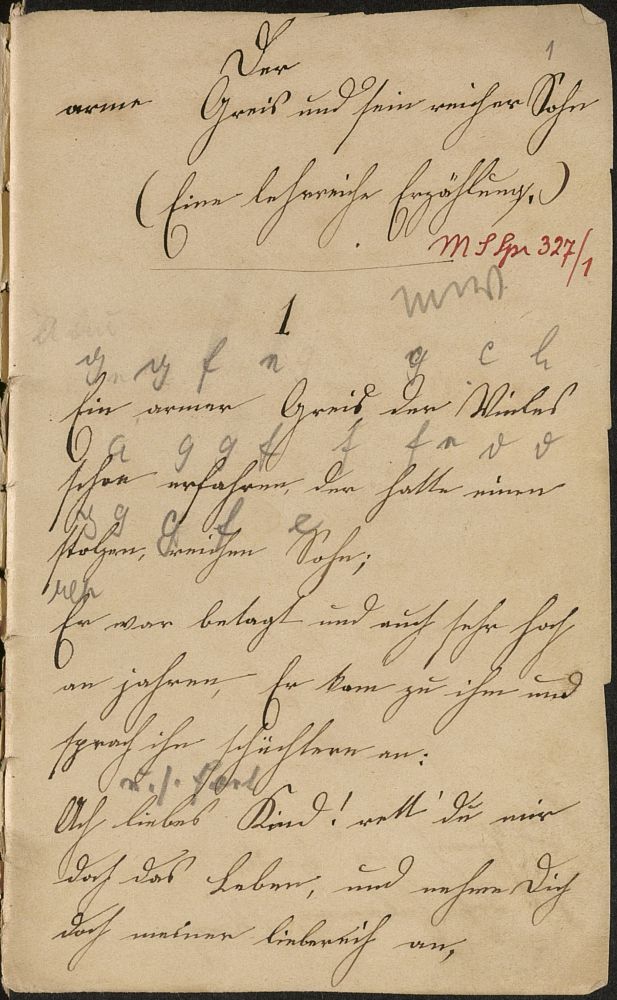 1
Der
arme Greis und sein reicher Sohn
(Eine lehrreiche Erzählung.)
327/1
1
g g f e g c h
Ein armer Greis der Vieles
a g g f f f e d d
schon erfahren, der hatte einen
g g f e
stolzen, reichen Sohn;
Er war betagt und auch sehr hoch
an jahren, Er kam zu ihm und
sprach ihn schüchtern an:
Ach liebes Kind! rett' du mir
doch das Leben, und nehme Dich
doch meiner liebereich an,